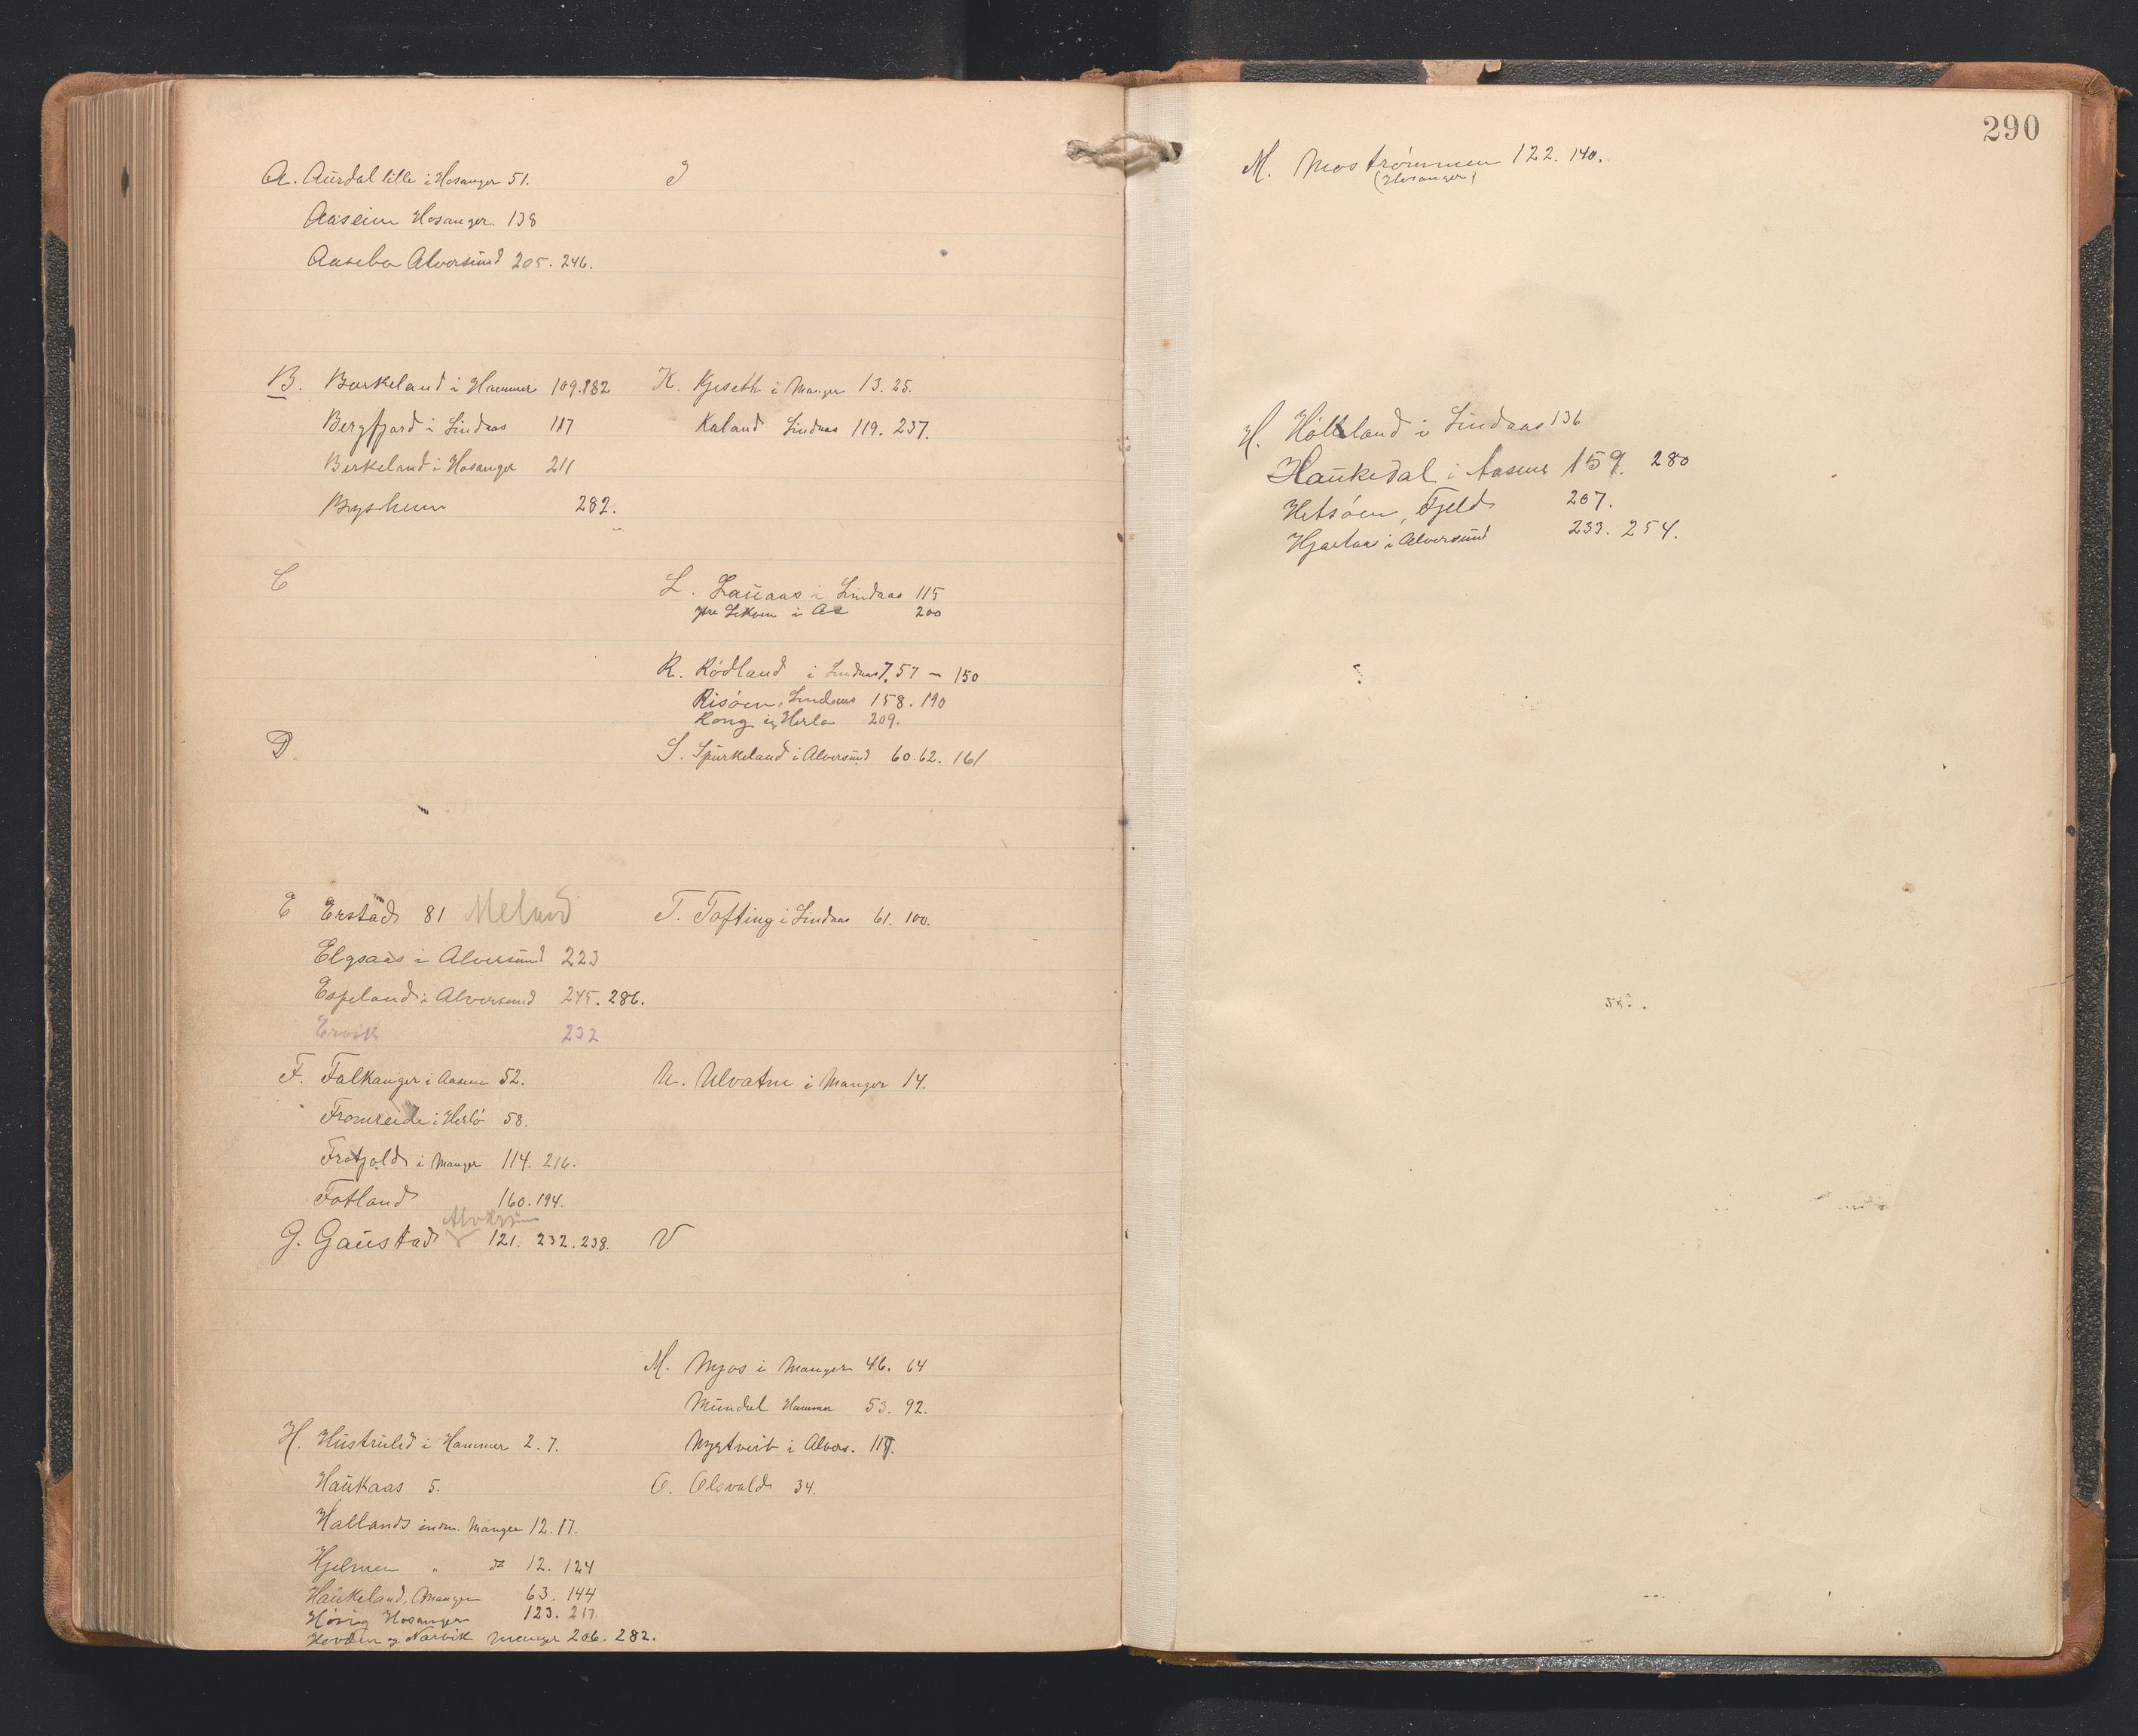 A. Aurdal lille i Hosanger 51.
Aaseim Hosanger. 138
Aasebø Alversund 205. 246.
B. Borkeland i Hammer 109. 182
Bergfjord i Lindaas 117
Birkeland i Hosanger 211
282.
C
D.
E Erstad 81 Meland
Elgsaas i Alversund 223
Espeland i Alversund 245. 286.
Ervik 232
F. Falkanger i Aasene 52.
Fromreide i Herlö 58.
Frotjold i Manger 114. 216.
Fotland 160. 194.
G. Gaustad 121. 232. 238.
H. Hustruld i Hammer 2. 7.
Haukaas 5.
Halland indre. Manger 12. 17.
Hjelmen " do 12. 124
Haukeland, Manger 63. 144
Hosanger 123. 217.
Hovden og Narvik Manger 206. 282.
I
K. Kjeseth i Manger 13. 25.
Kaland Lindaas 119. 237.
L. Lauaas i Lindaas 115
i 200
R. Rödland i Lindaas 7. 57 – 150
Risöen, Lindaas 158. 190
Rong i Herlø 209.
S. Spurkeland i Alversund 60. 62. 161
T. Tofting i Lindaas 61. 100.
U. Ulvatne i Manger 14.
V
M. Mjøs i Manger 46. 64
Mundal Hammer 53. 92.
i Alvers.
O. Olsvold 34.
290
M. Mostrømmen 122. 140.
(Hosanger)
H. Hölland i Lindaas 136
Haukedal i Aasene 159. 280
Hetsöen, Fjeld 207.
Hjertaas i Alversund 233. 254.